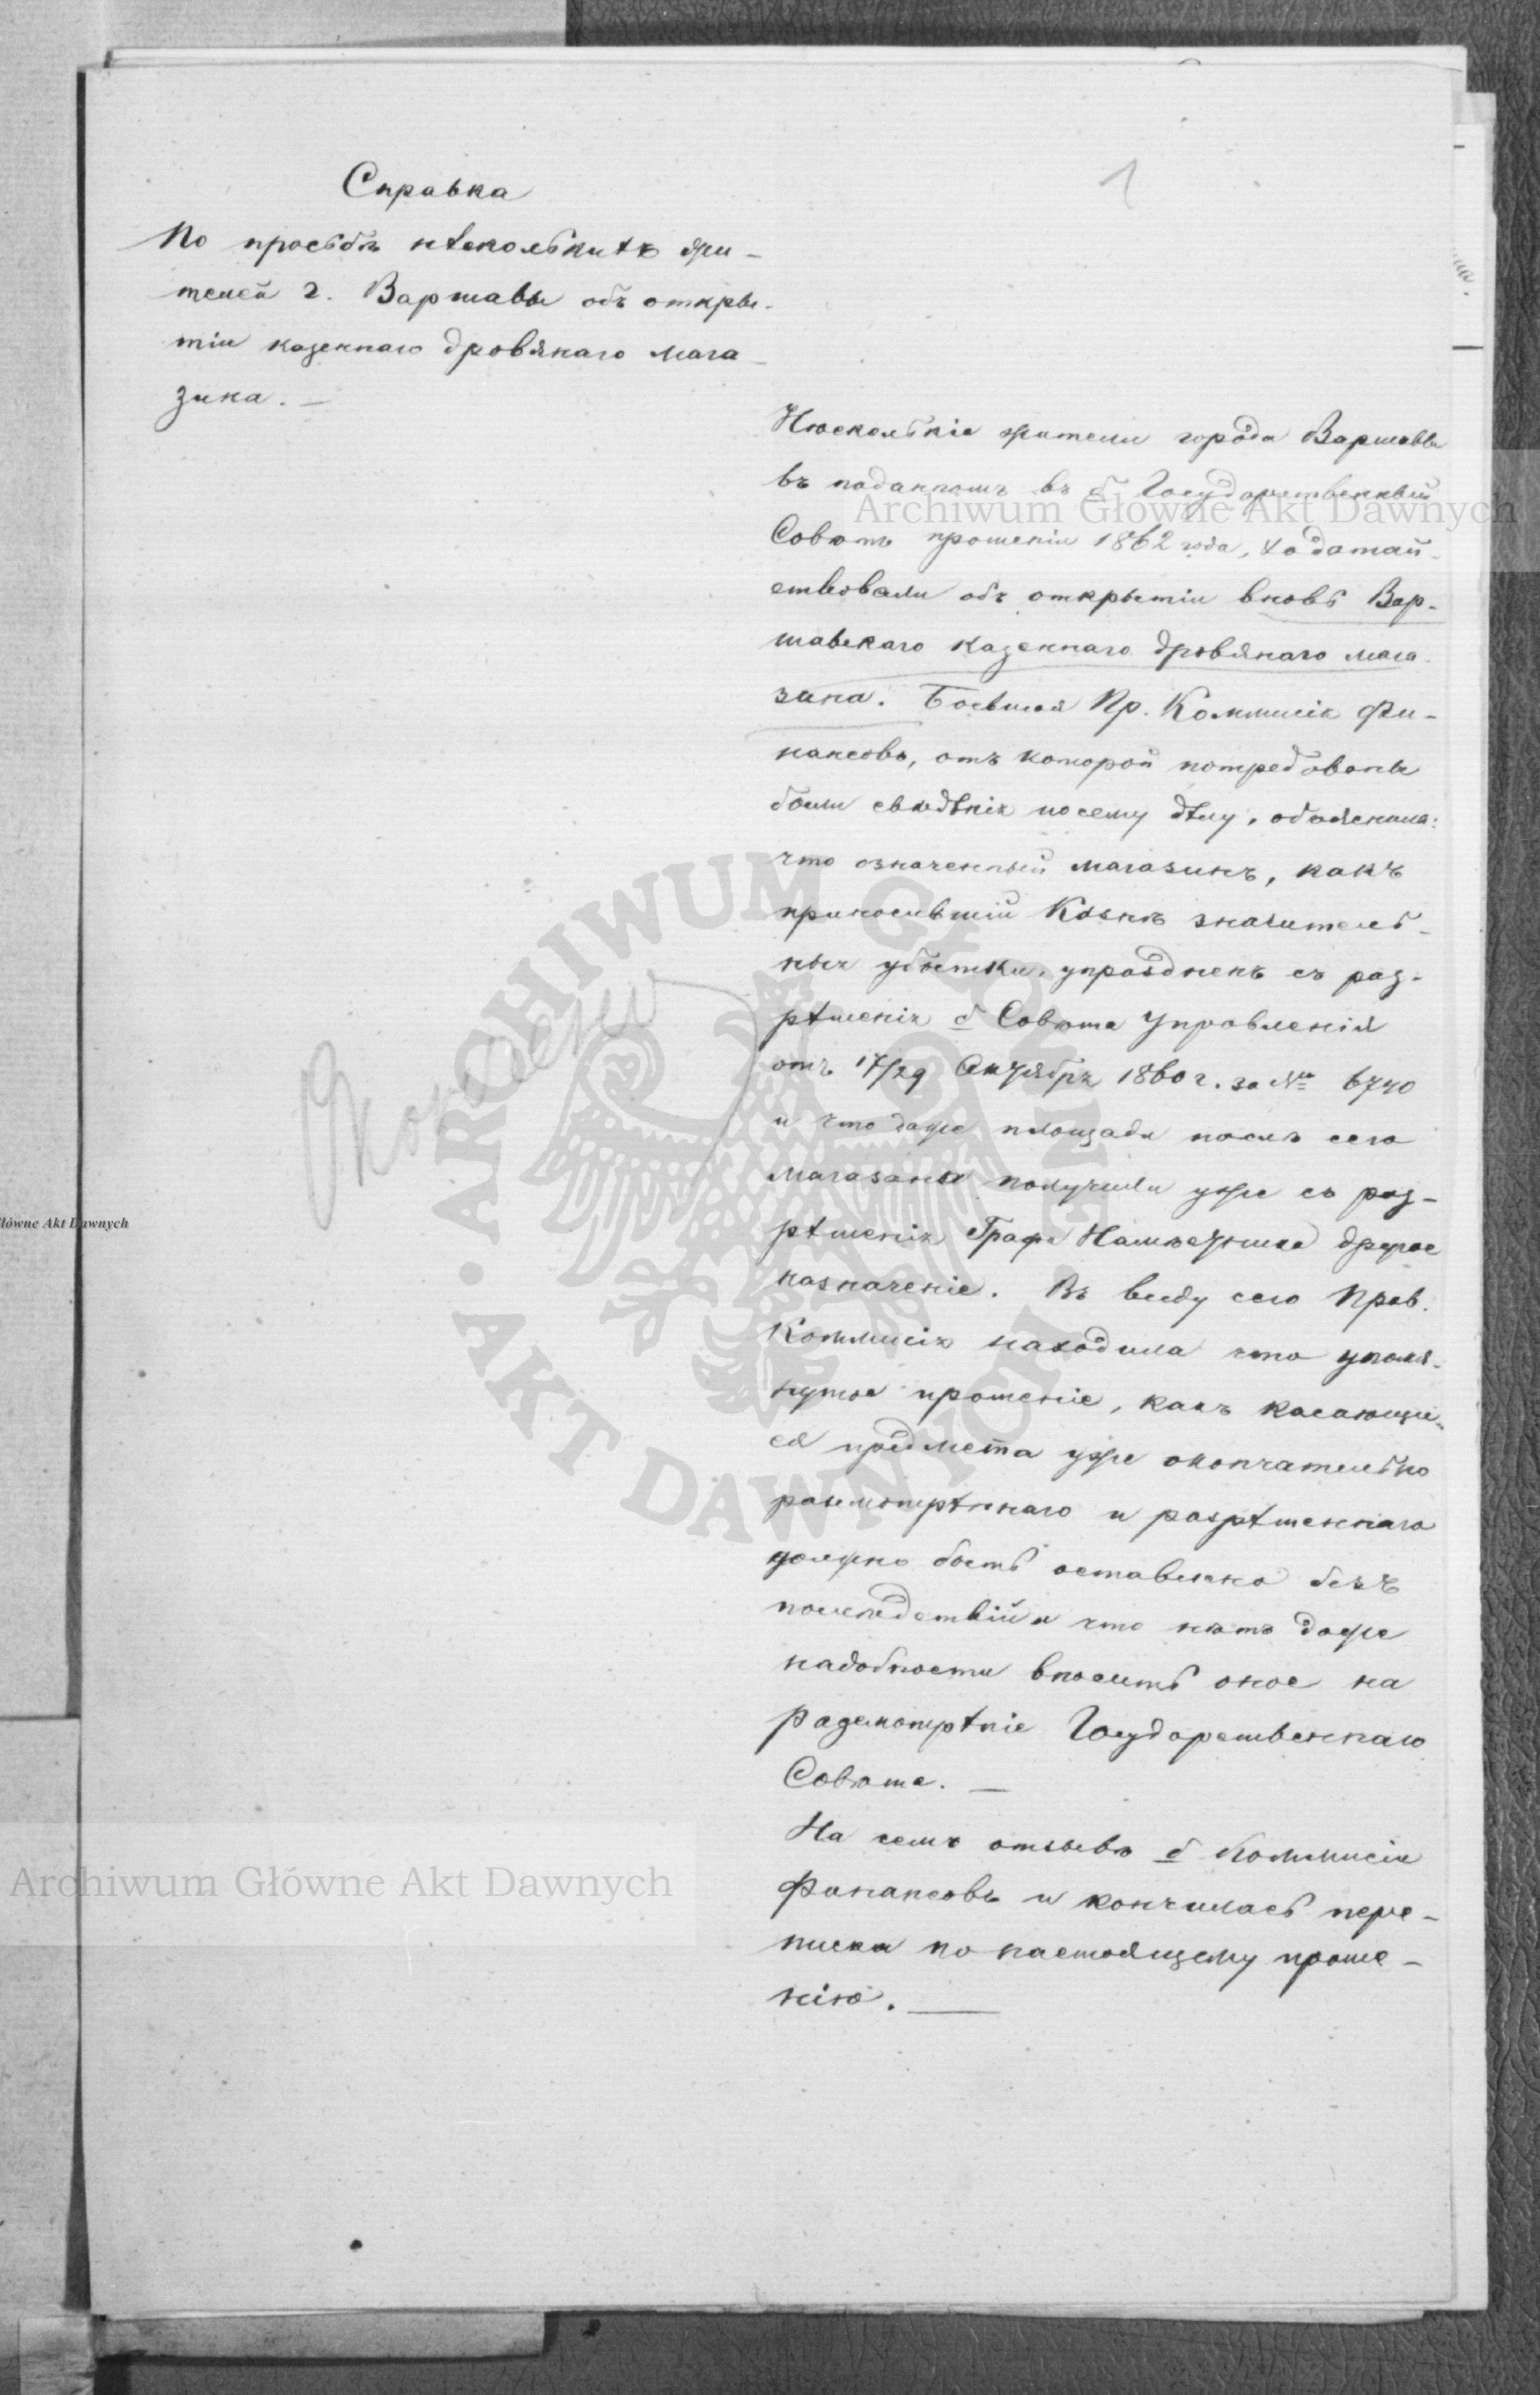 1
Справка
По просьбѣ нѣсколькихъ жи-
телей г. Варшавы объ откры-
тіи казеннаго дровянаго мага-
зина. —
Нѣсколькіе жители города Варшавы
въ поданномъ въ б Государственный
Совѣтъ прошеніи 1862 года, ходатай-
ствовали объ открытіи вновь Вар-
шавскаго казеннаго дровянаго мага-
зина. Бывшая Пр. Коммисія Фи-
нансовъ, отъ которой потребованы
были свѣдѣнія по сему дѣлу, объяснила:
что означенный магазинъ, какъ
приносившій Казнѣ значитель-
ные убытки, упраздненъ съ раз-
рѣшенія б Совѣта Управленія
отъ 17/29 Октября 1860 г. за № 6740
и что даже площади послѣ сего
магазина получили уже съ раз-
рѣшенія Графа Намѣстника другое
назначеніе. Въ виду сего Прав.
Коммисія находила что упомя-
нутое прошеніе, какъ касающее-
ся предмета уже окончательно
разсмотрѣннаго и разрѣшеннаго
должно быть оставлено безъ
послѣдствій и что нѣтъ даже
надобности вносить оное на
разсмотрѣніе Государственнаго
Совѣта. —
На семъ отзывѣ б Коммисіи
Финансовъ и кончилась пере-
писка по настоящему проше-
нію. —
Archiwum Główne Akt Dawnych
Archiwum Główne Akt Dawnych
łówne Akt Dawnych
ARCHIWUM GŁÓWNE AKT DAWNYCH